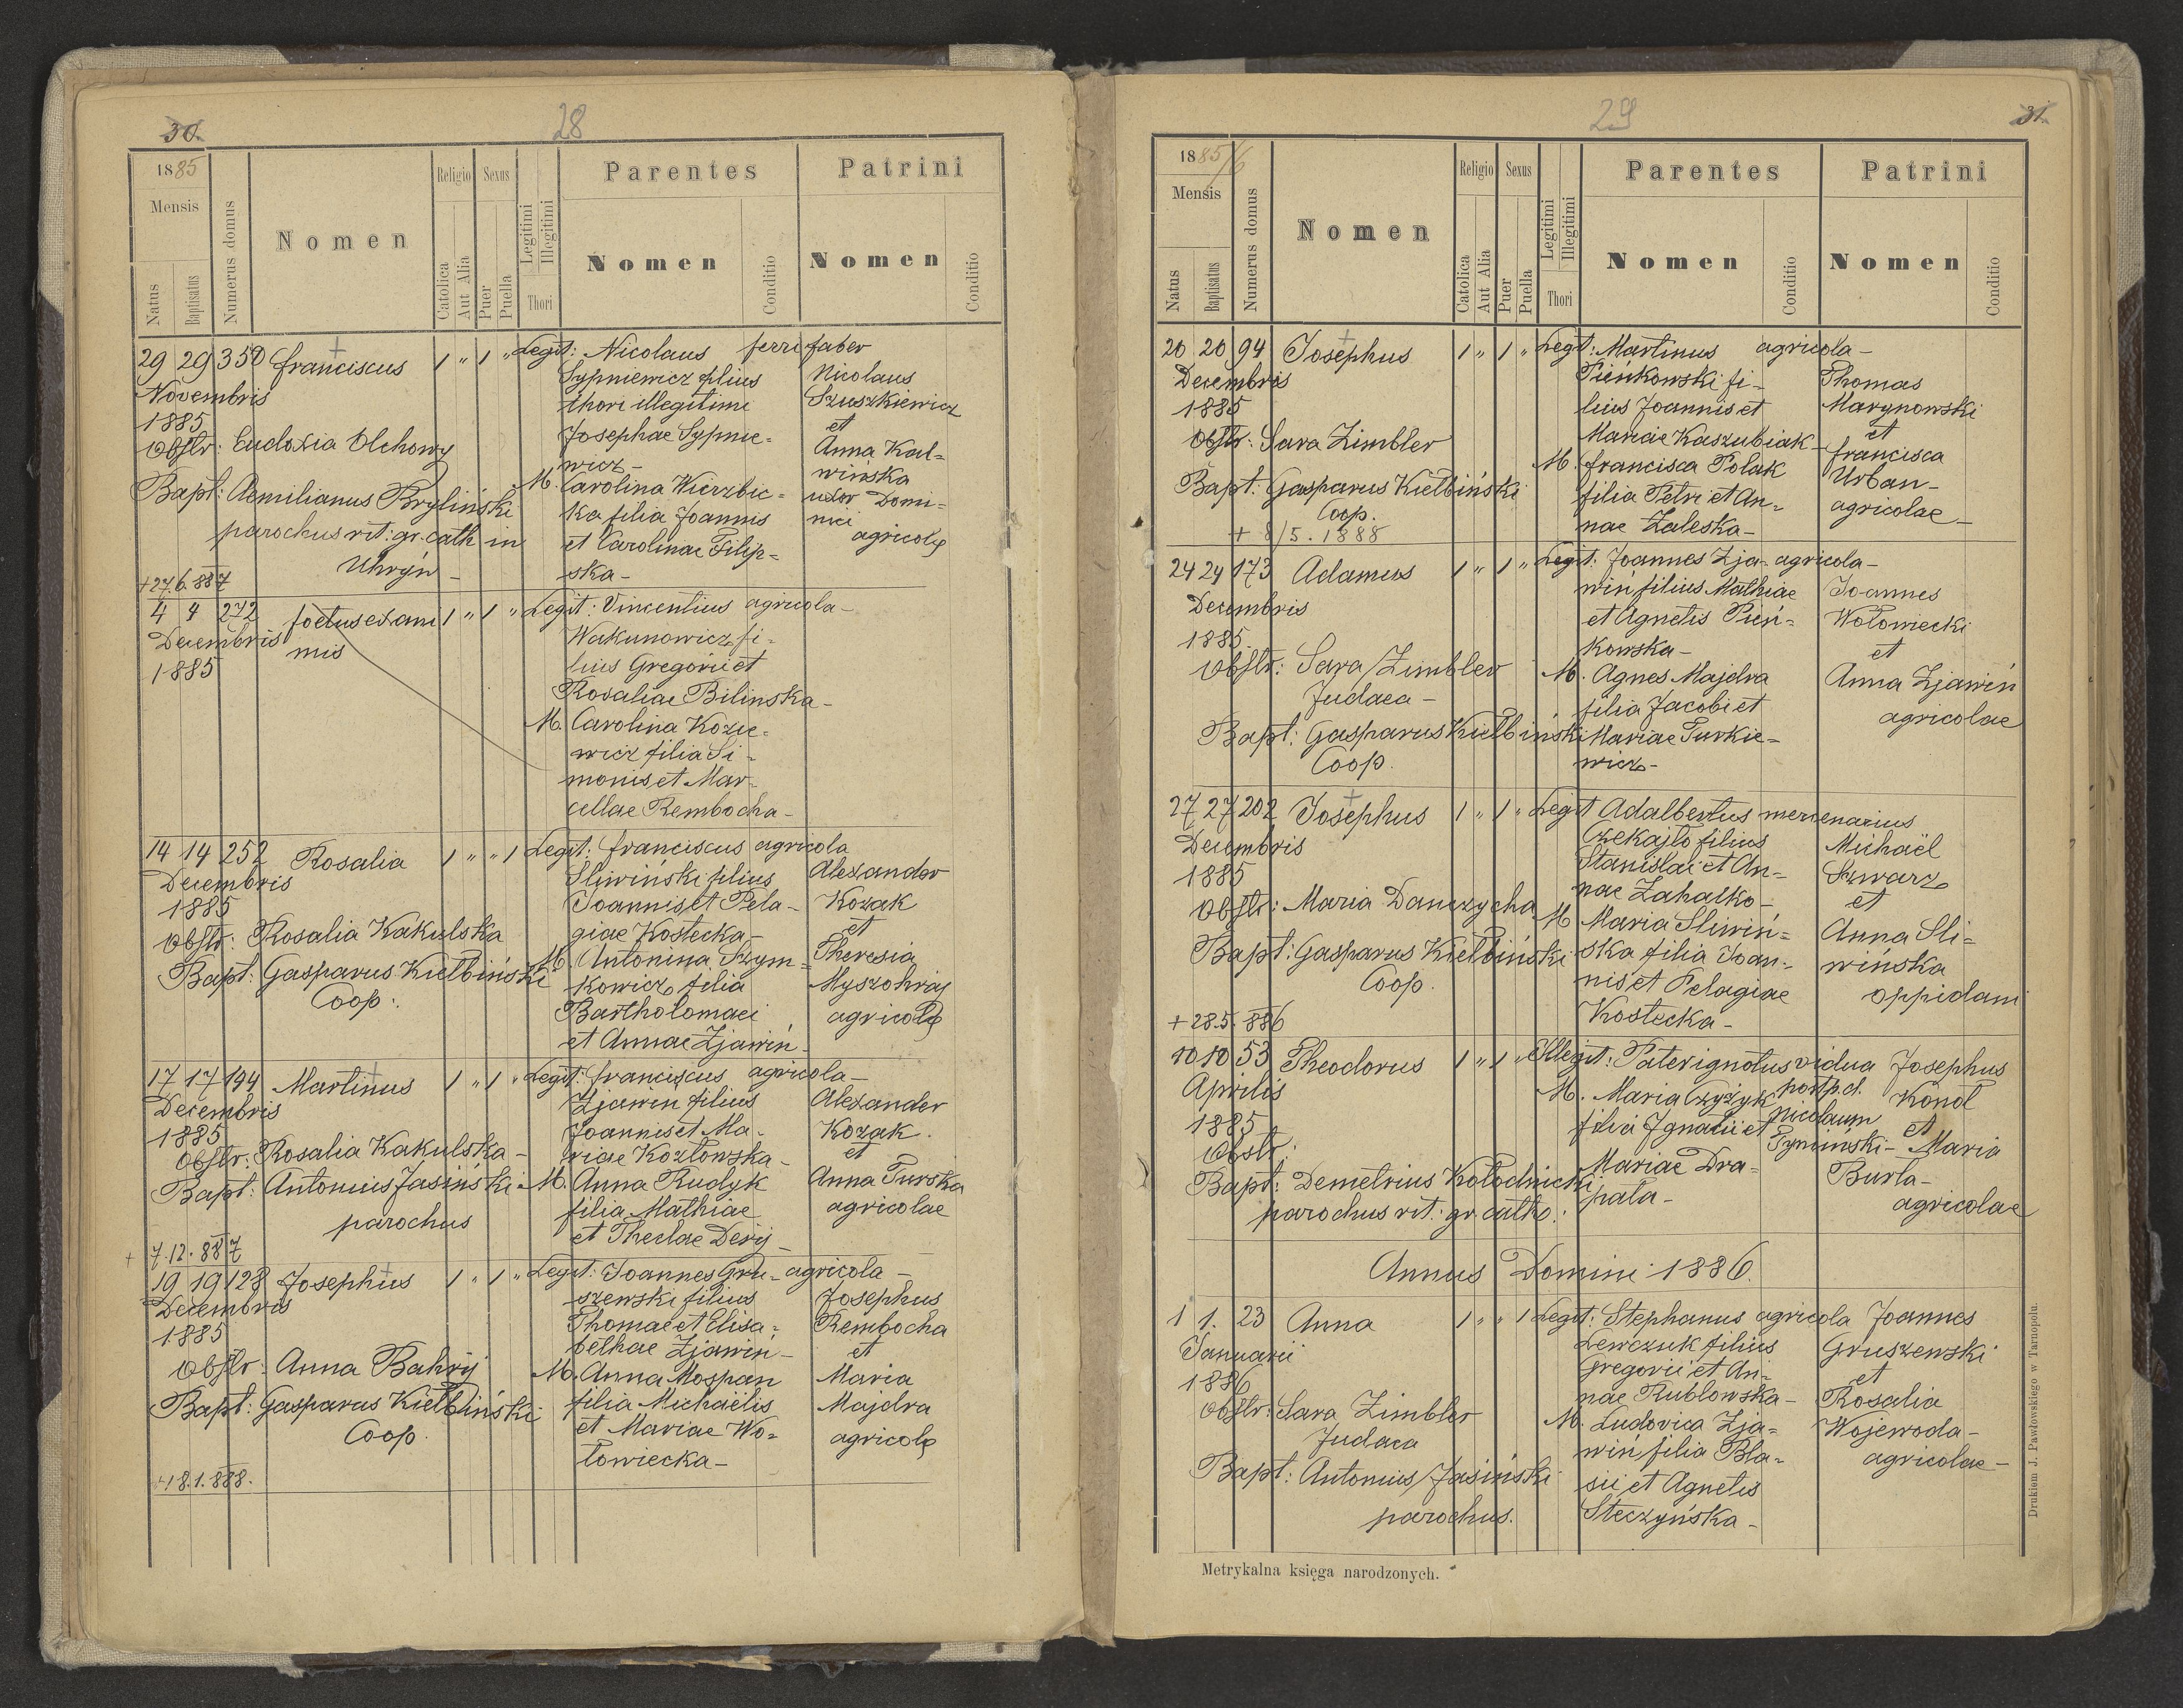 30.
28
1885
Mensis
Natus
Baptisatus
Numerus domus
Nomen
Religio
Catolica
Aut Alia
Sexus
Puer
Puella
Legitimi
Illegitimi
Thori
Parentes
Nomen
Conditio
Patrini
Nomen
Conditio
29 29 350 Franciscus 1 " 1 " Legit: Nicolaus ferri faber
Novembris
1885
Sypniewicz filius
thori illegitimi
Josephae Sypnie=
wicz-
M. Carolina Wierzbic=
ka filia Joannis
et Carolinae Filip=
ska-
Nicolaus
Szuszkiewicz
et
Anna Kal=
wińska
uxor Domi=
nici
agricolę
Obstr: Eudoxia Olchowy
Bapt: Aemilianus Bryliński
parochus rit: gr. cath in
Uhryń -
+27.6.887
4 4 272 foetus exani 1 " 1 " Legit: Vincentius agricola-
mis
Decembris
1885
Wakunowicz fi=
lius Gregorii et
Rosaliae Bilinska-
M. Carolina Kozie=
wicz filia Si=
monis et Mar=
cellae Rembocha-
14 14 252 Rosalia 1 " " 1 Legit: Franciscus agricola
Decembris
1885
Sliwiński filius
Joannis et Pela-
giae Kostecka-
M. Antonina Szym=
kowicz filia
Bartholomaei
et Annae Zjawiń-
Alexander
Kozak
et
Theresia
Myszohraj
agricolę
Obstr: Rosalia Kakulska
Bapt: Gasparus Kiełbiński
Coop:
17 17 194 Martinus 1 " 1 " Legit: Franciscus agricola-
Decembris
1885
Zjawin filius
Joannis et Ma-
riae Kozłowska-
M. Anna Rudyk
filia Mathiae
et Theclae Deryj-
Alexander
Kozak.
et
Anna Turska
agricolae
Obstr: Rosalia Kakulska-
Bapt: Antonius Jasiński-
parochus
+ 7.12.887
19 19 128 Josephus 1 " 1 " Legit: Joannes Gru= agricola-
Decembris
1885
szewski filius
Thomae et Elisa=
bethae Zjawiń-
M. Anna Mospan
filia Michaëlis
et Mariae Wo=
łowiecka-
Josephus
Rembocha
et
Maria
Majdra
agricolę
Obstr: Anna Bahrij
Bapt: Gasparus Kiełbiński
Coop.
+18.1.888.
29
31.
1885/6
Mensis
Natus
Baptisatus
Numerus domus
Nomen
Religio
Catolica
Aut Alia
Sexus
Puer
Puella
Legitimi
Illegitimi
Thori
Parentes
Nomen
Conditio
Patrini
Nomen
Conditio
20 20 94 Josephus 1 " 1 " Legit: Martinus agricola-
Decembris
1885
Pieńkowski fi-
lius Joannis et
Mariae Kaszubiak-
M. Francisca Polak
filia Petri et An=
nae Zaleska-
Thomas
Marynowski
et
Francisca
Urban-
agricolae-
Obstr: Sara Zimbler
Bapt: Gasparus Kiełbiński
Coop.
+ 8/5. 1888
24 24 173 Adamus 1 " 1 " Legit: Joannes Zja- agricola-
Decembris
1885.
win filius Mathiae
et Agnetis Pień=
kowska-
M. Agnes Majdra
filia Jacobi et
Mariae Turkie=
wicz-
Joannes
Wołowiecki
et
Anna Zjawiń
agricolae
Obstr: Sara Zimbler
Judaea-
Bapt: Gasparus Kiełbiński
Coop.
27 27 202 Josephus 1 " 1 " Legit Adalbertus mercenarius
Decembris
1885
Czekajło filius
Stanislai et An=
nae Zahalko-
M Maria Sliwiń=
ska filia Joan=
nis et Pelagiae
Kostecka-
Michaël
Szwarz
et
Anna Sli=
wińska
oppidani
Obstr: Maria Danczycha
Bapt: Gasparus Kiełbiński
Coop.
+28.5.886
10 10 53 Theodorus 1 " 1 " Illegit: Pater ignotus vidua Josephus
Aprilis
1885
M. Maria Czyżyk post p.d.
filia Ignatii et Nicolaum
Mariae Dra- Tymiński-
pata-
Kondl
et
Maria
Burla-
agricolae
Obstr:
Bapt: Demetrius Kołodnicki
parochus rit: gr. cath:
Annus Domini 1886.
1 1. 23 Anna 1 " " 1 Legit: Stephanus agricola Joannes
Januarii
1886
Lewczuk filius
Gregorii et An=
nae Rublowska-
M. Ludovica Zja=
win filia Bla=
sii et Agnetis
Steczyńska-
Gruszewski
et
Rosalia
Wojewoda-
agricolae-
Obstr: Sara Zimbler
Judaea
Bapt: Antonius Jasiński
parochus.
Metrykalna księga narodzonych.
Drukiem J. Pawłowskiego w Tarnopolu.